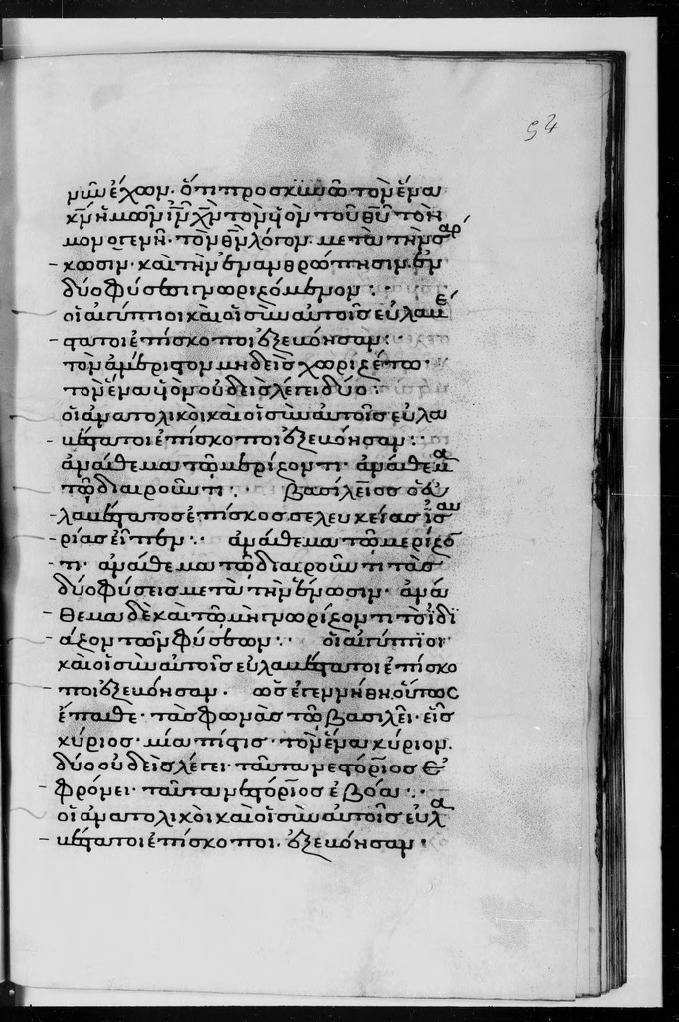 54
μῶν ἔχων· ὅτι προσκυνῶ τὸν ἕνα
κ̅ν̅ ἡμῶν ι̅ν̅ χ̅ν̅ τὸν υἱὸν τοῦ θ̅υ̅ τὸν
μονογενῆ· τὸν θ̅ν̅ λόγον. μετὰ τὴν σάρ
κωσιν· καὶ τὴν ἐνανθρώπησιν. ἐν
δύο φύσεσι γνωριζόμενον:·
οἱ αἰγύπτιοι καὶ οἱ σὺν αὐτοῖς εὐλαβέ
στατοι ἐπίσκοποι ἐξεβόησαν:
τὸν ἀμέριστον μηδεὶς χωριζέτω·
τὸν ἕνα υἱὸν οὐδεὶς λέγει δύο:
οἱ ἀνατολικοὶ καὶ οἱ σὺν αὐτοῖς εὐλα
βέστατοι ἐπίσκοποι ἐξεβόησαν:·
ἀνάθεμα τῷ μερίζοντι· ἀνάθεμα
τῷ διαιροῦντι:· βασίλειος ὁ εὐ
λαβέστατος ἐπίσκοπος σελευκείας ἰσαυ
ρίας εἶπεν:· ἀνάθεμα τῷ μερίζο
τι· ἀνάθεμα τῷ διαιροῦντι τὰς
δύο φύσεις μετὰ τὴν ἕνωσιν· ἀνά
θεμα δὲ καὶ τῷ μὴ γνωρίζοντι τὸ ἰδι
άζον τῶν φύσεων:· οἱ αἰγύπτιοι
καὶ οἱ σὺν αὐτοῖς εὐλαβέστατοι ἐπίσκο
ποι ἐξεβόησαν. ὡς ἐγεννήθη, οὕτως
ἔπαθε· τὰς φωνὰς τῷ βασιλεῖ· εἷς
κύριος· μία πίστις· τὸν ἕνα κύριον.
δύο οὐδεὶς λέγει· ταῦτα νεστόριος ἐ
φρόνει· ταῦτα νεστόριος ἐβόα:·
οἱ ἀνατολικοὶ καὶ οἱ σὺν αὐτοῖς εὐλα
βέστατοι ἐπίσκοποι. ἐξεβόησαν·